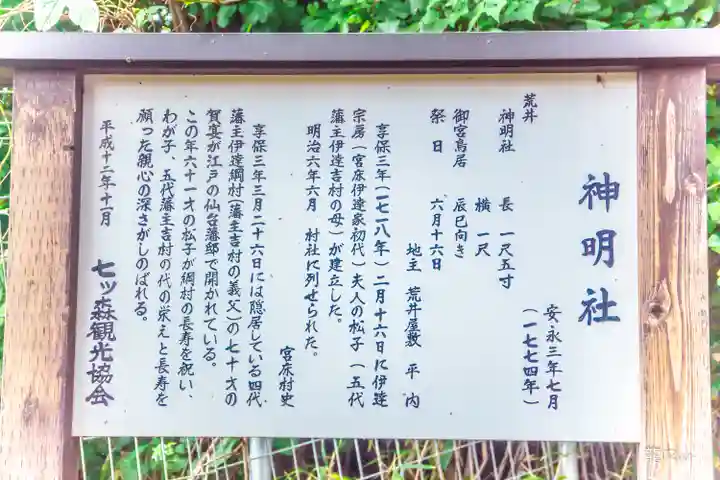 神明社
安永三年七月
(一七七四年)
荒井
神明社 長 一尺五寸
横 一尺
御宮鳥居 辰巳向き
祭日 六月十六日
地主 荒井屋敷 平内
享保三年(一七一八年)二月十六日に伊達
宗房(宮床伊達家初代)夫人の松子(五代
藩主伊達吉村の母)が建立した。
明治六年六月 村社に列せられた。
宮床村史
享保三年三月二十六日には隠居している四代
藩主伊達綱村(藩主吉村の義父)の七十才の
賀宴が江戸の仙台藩邸で開かれている。
この年六十一才の松子が綱村の長寿を祝い、
わが子、五代藩主吉村の代の栄えと長寿を
願った親心の深さがしのばれる。
平成十二年十一月
七ッ森観光協会